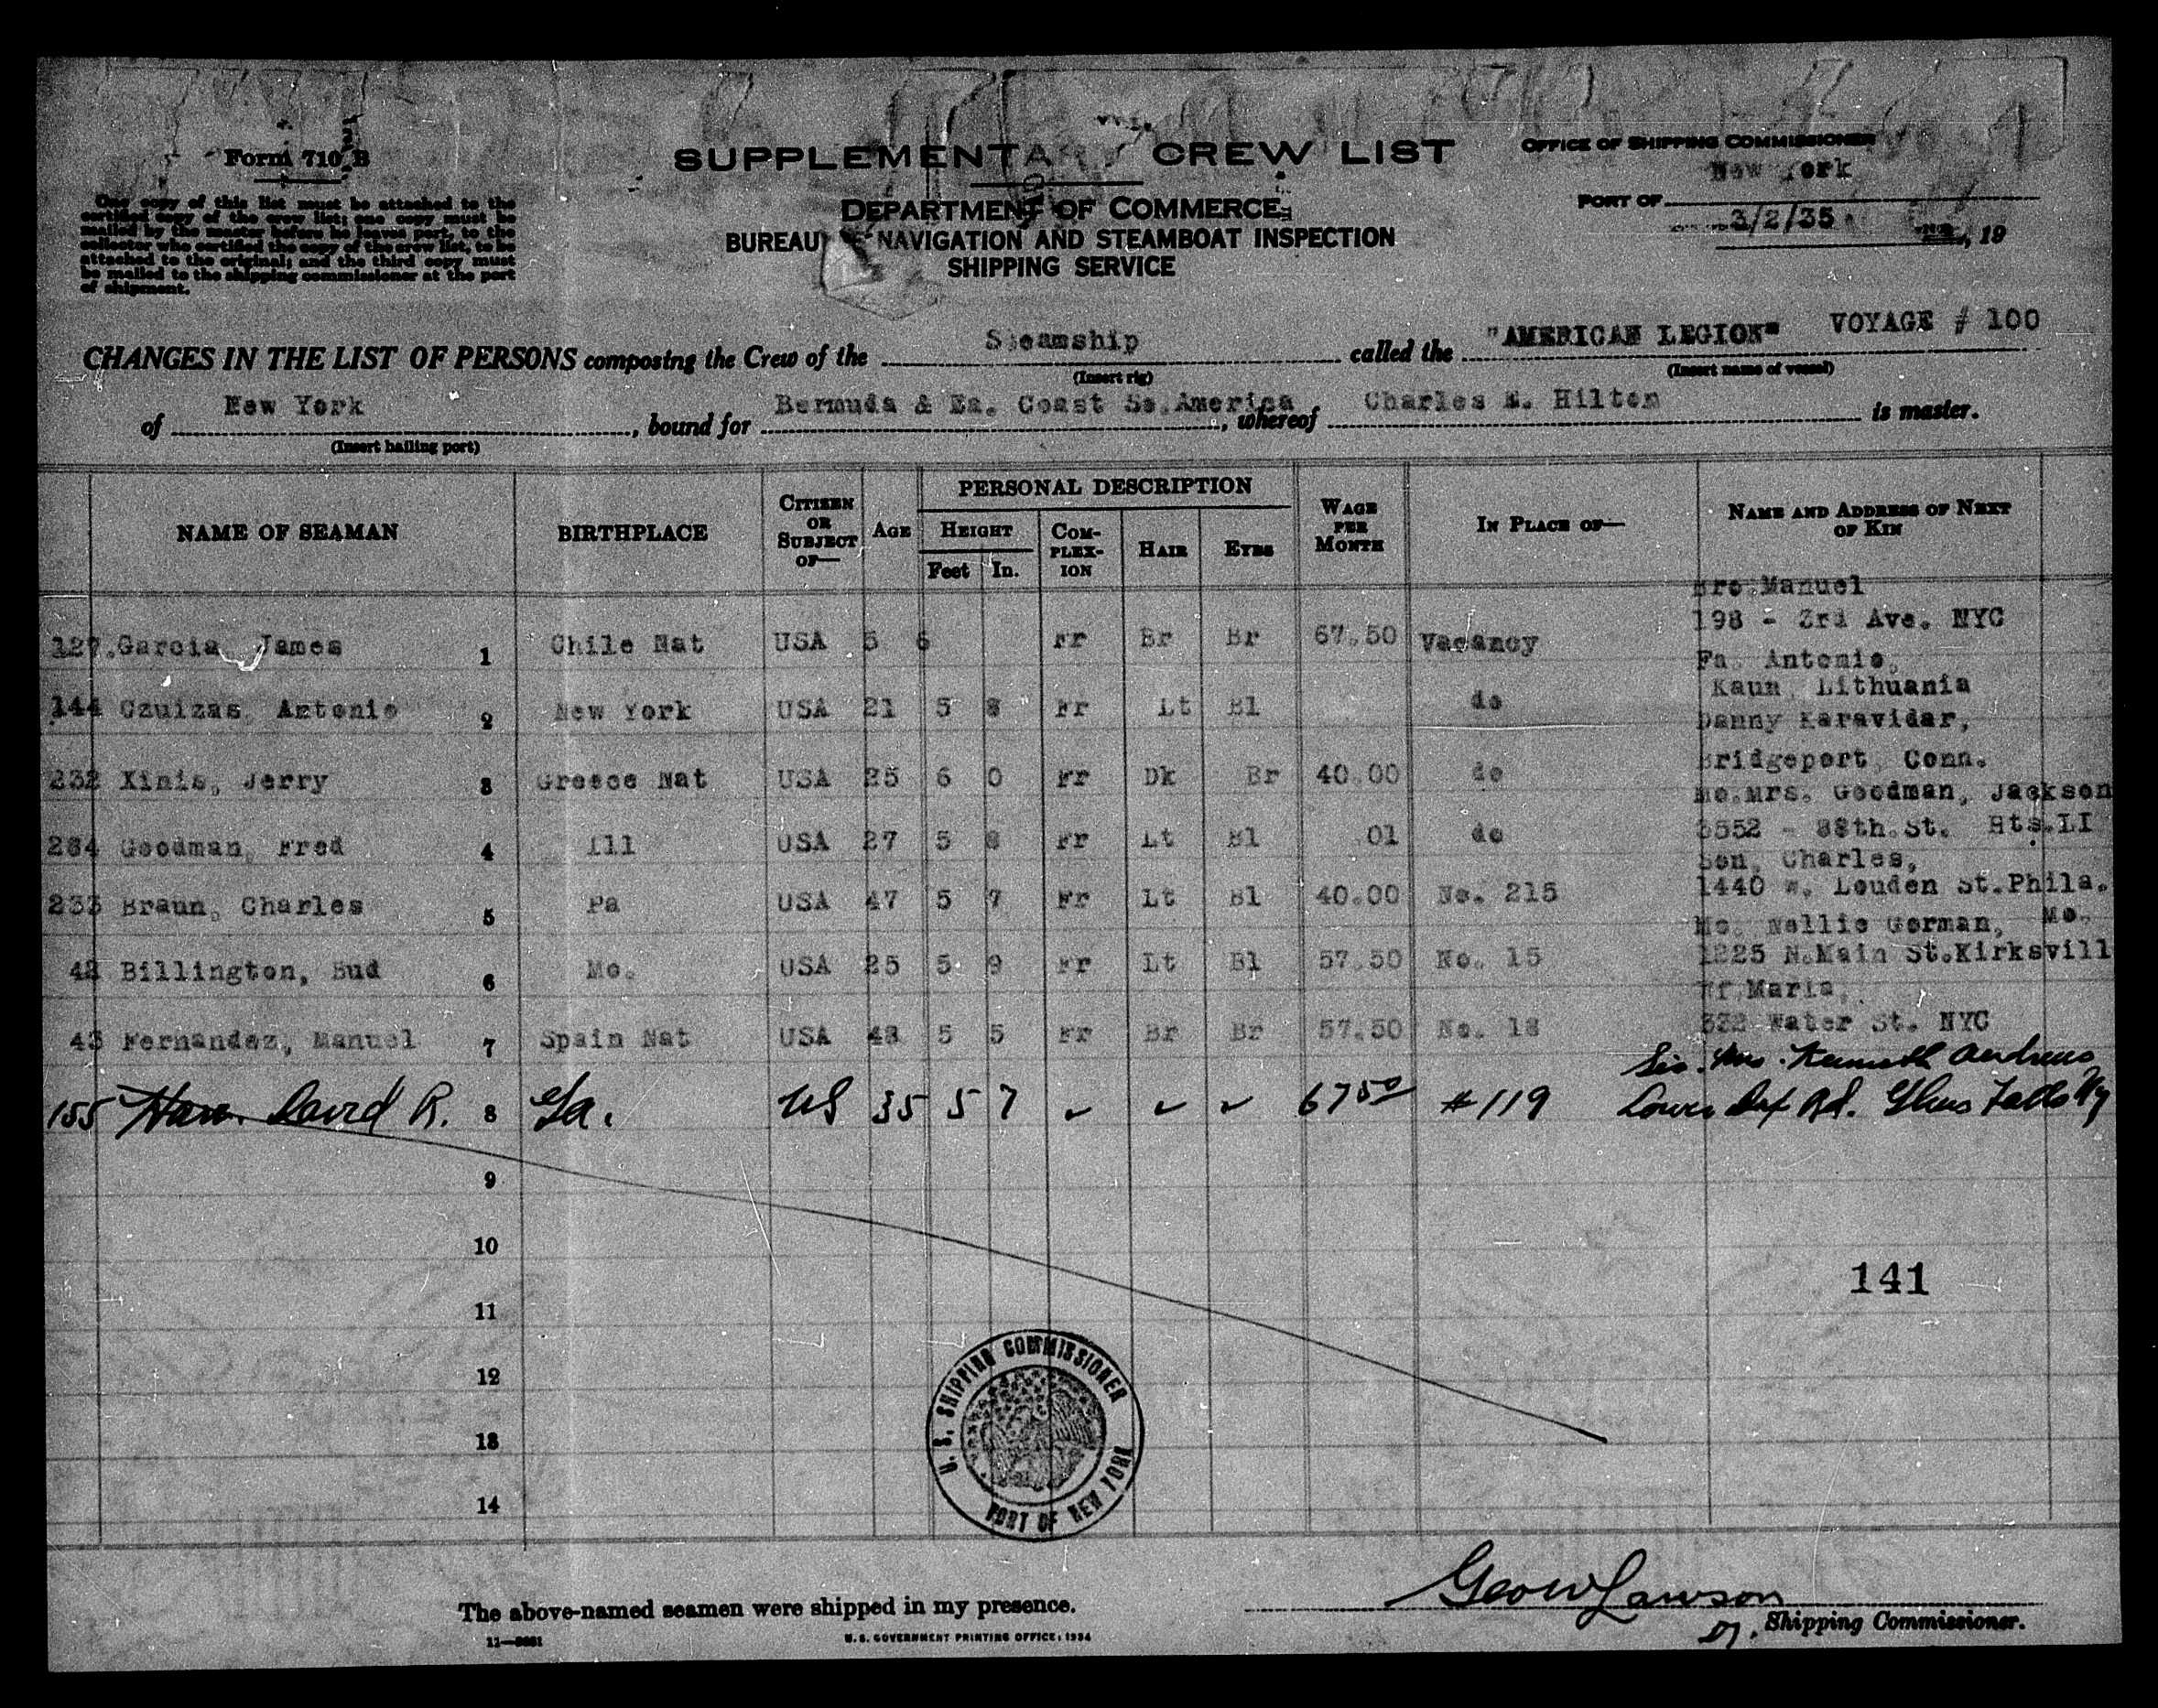 Form 710 B
One copy of this list must be attached to the
certified copy of the crew list; one copy must be
mailed by the master before he leaves port, to the
collector who certified the copy of the crew list, to be
attached to the original; and the third copy must
be mailed to the shipping commissioner at the port
of shipment.
SUPPLEMENTARY CREW LIST
DEPARTMENT OF COMMERCE
BUREAU NAVIGATION AND STEAMBOAT INSPECTION
SHIPPING SERVICE
OFFICE OF SHIPPING COMMISSIONER
New York
PORT OF
3/2/35 , 19
CHANGES IN THE LIST OF PERSONS composing the Crew of the Steamship called the "AMERICAN LEGION" VOYAGE # 100
(Insert rig) (Insert name of vessel)
of New York, bound for Bermuda & Ea. Coast So. America, whereof Charles M. Hilton is master.
(Insert hailing port)
NAME OF SEAMAN BIRTHPLACE CITIZEN OR SUBJECT OF— AGE PERSONAL DESCRIPTION WAGE PER MONTH IN PLACE OF— NAME AND ADDRESS OF NEXT OF KIN
HEIGHT COM-PLEX-ION HAIR EYES
Feet In.
Bro. Manuel
127. Garcia, James 1 Chile Nat USA 5 6 Fr Br Br 67.50 Vacancy 198 - 3rd Ave. NYC
Fa. Antonio,
144 Czuizas, Antonio 2 New York USA 21 5 8 Fr Lt Bl do Kaun, Lithuania
Danny Karavidar,
232 Xinis, Jerry 3 Greece Nat USA 25 6 0 Fr Dk Br 40.00 do Bridgeport, Conn.
Mo. Mrs. Goodman, Jackson
284 Goodman, Fred 4 Ill USA 27 5 8 Fr Lt Bl 01 do 3552 - 88th. St. Hts. LI
Son, Charles,
233 Braun, Charles 5 Pa USA 47 5 7 Fr Lt Bl 40.00 No. 215 1440 W. Louden St. Phila.
Mo. Nellie Gorman, Mo.
42 Billington, Bud 6 Mo. USA 25 5 9 Fr Lt Bl 57.50 No. 15 1225 N. Main St. Kirksvill
Wf. Maria,
43 Fernandez, Manuel 7 Spain Nat USA 48 5 5 Fr Br Br 57.50 No. 18 332 Water St. NYC
Sis. Mrs. Kenneth Andrews
155 David R. 8 Ga. US 35 5 7 ✓ ✓ ✓ 67 50 #119 Lower Rd. Glens Falls Ny
9
10
141
11
12
13
14
U. S. SHIPPING COMMISSIONER
PORT OF NEW YORK
The above-named seamen were shipped in my presence.
Geo W Lawson
Dy. Shipping Commissioner.
U. S. GOVERNMENT PRINTING OFFICE: 1934